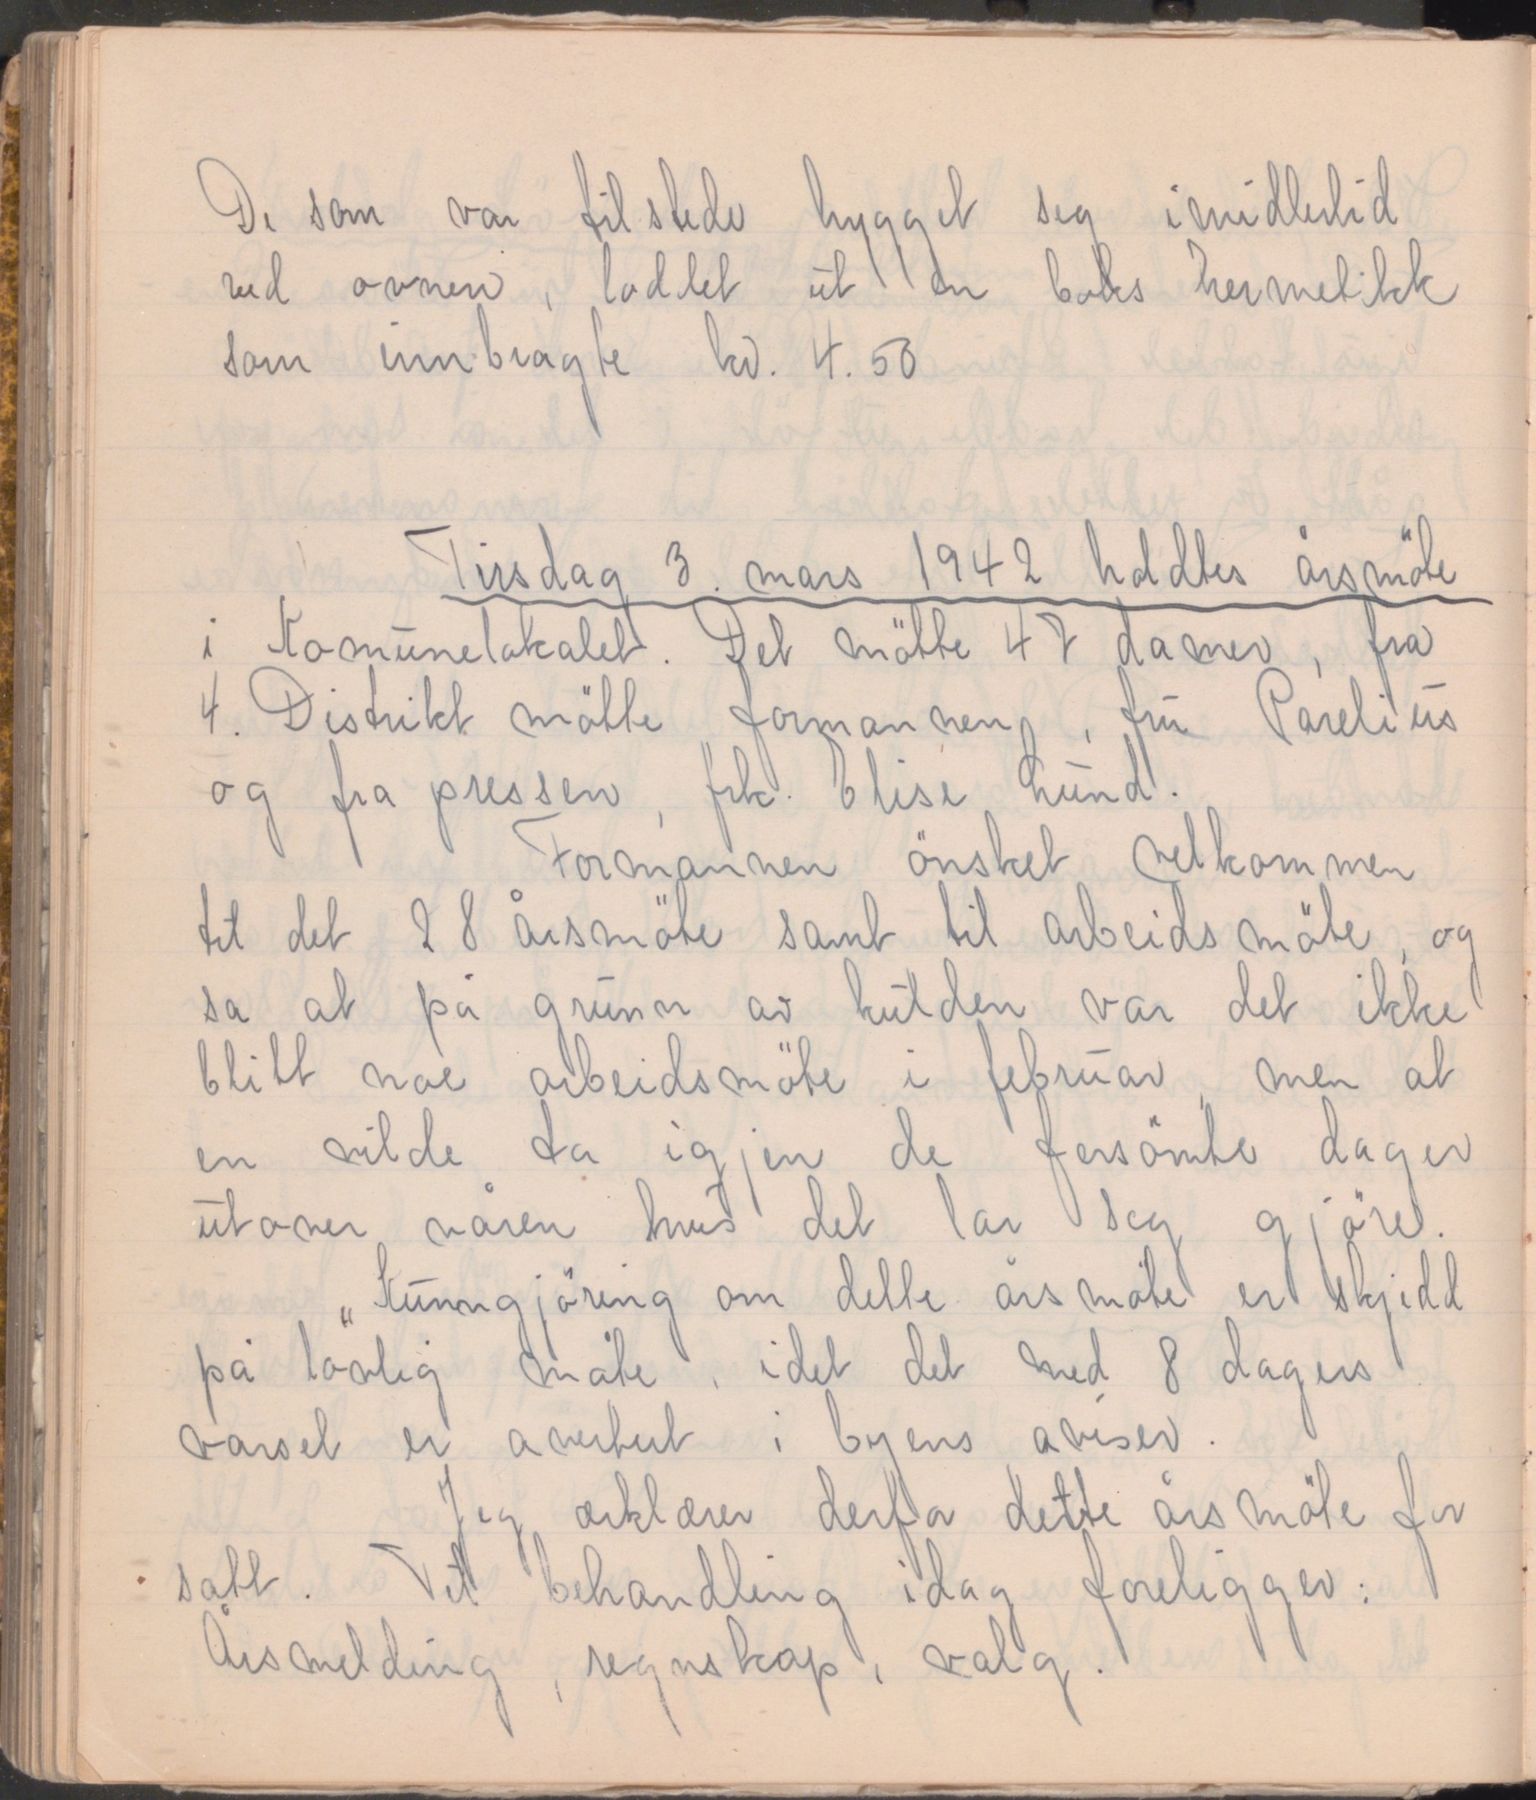 De som var tilstede hygget seg imidlertid
ved ovnen, loddet ut en boks hermetikk
som innbragte kr. 4.50
Tirsdag 3. mars 1942 holdtes årsmöte
i Komunelokalet. Det mötte 47 damer, fra
4. Distrikt mötte formannen, fru Parelius
og fra pressen, frk. Elise Lund.
Formannen önsket velkommen
til det 28 årsmöte samt til arbeidsmöte, og
sa at på grunn av kulden var det ikke
blitt noe arbeidsmöte i februar, men at
en vilde ta igjen de forsömte dager
utover våren hvis det lar seg gjöre.
„Kunngjöring om dette årsmöte er skjedd
på lovlig måte, idet det med 8 dagers
varsel er avertert i byens aviser.
Jeg erklærer derfor dette årsmöte for
satt. Til behandling idag foreligger:
Årsmelding, regnskap, valg.